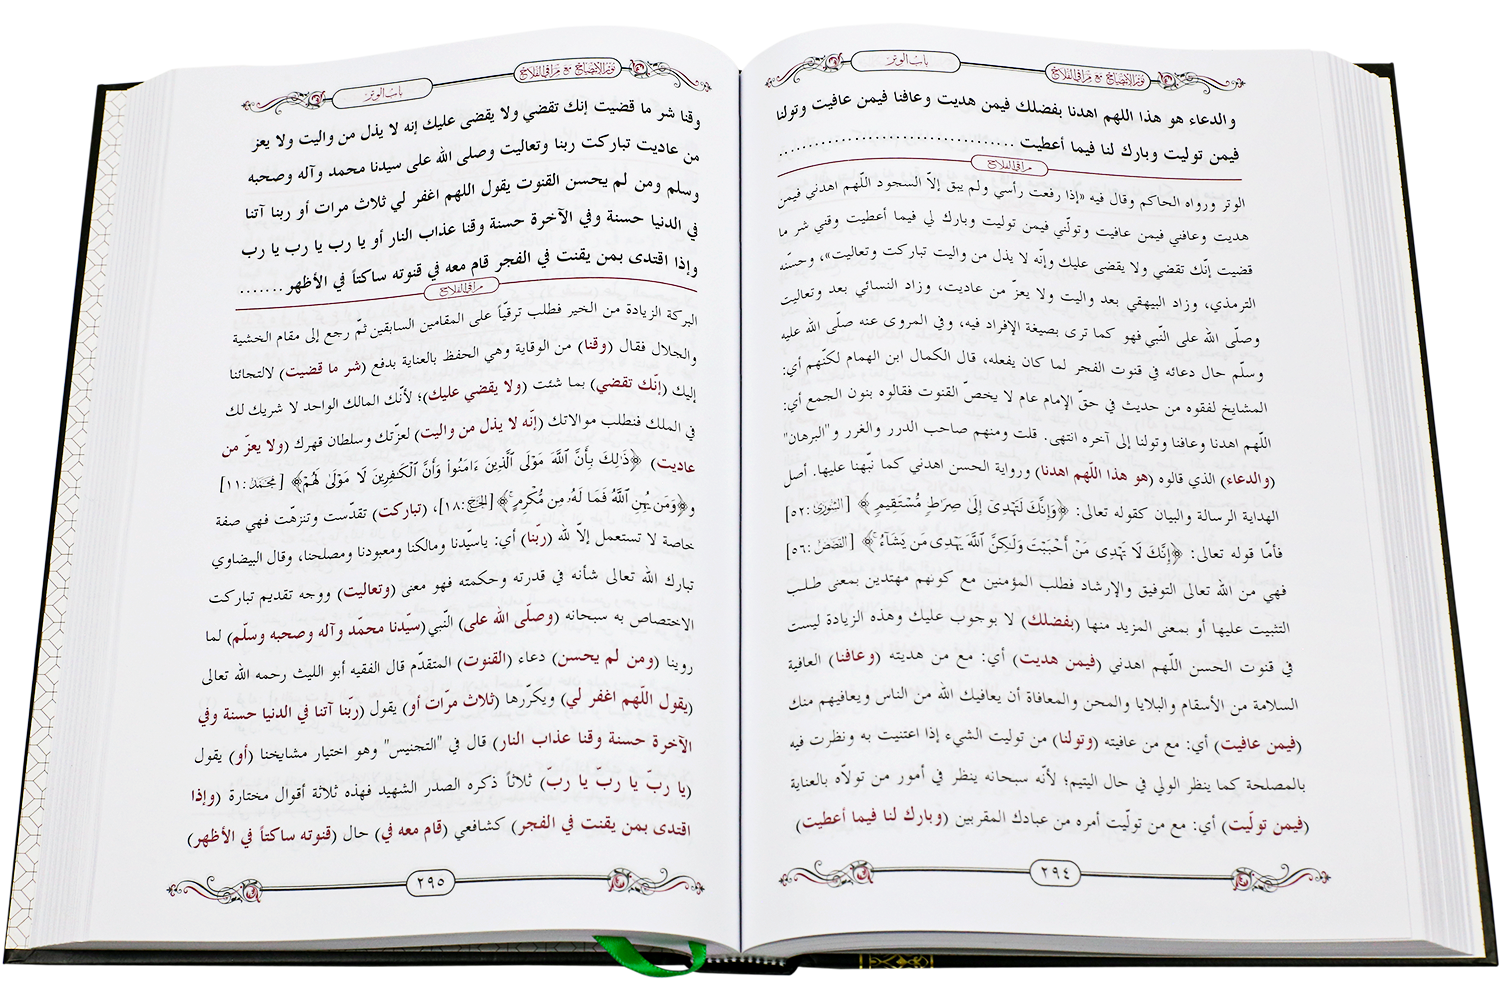 نور الإيضاح مع مراقي الفلاح
باب الوتر
والدعاء هو هذا اللهم اهدنا بفضلك فيمن هديت وعافنا فيمن عافيت وتولنا
فيمن توليت وبارك لنا فيما أعطيت ..................................
مراقي الفلاح
الوتر ورواه الحاكم وقال فيه «إذا رفعت رأسي ولم يبق إلاّ السجود اللّهم اهدني فيمن
هديت وعافني فيمن عافيت وتولّني فيمن توليت وبارك لي فيما أعطيت وقني شر ما
قضيت إنّك تقضي ولا يقضى عليك وإنّه لا يذل من واليت تباركت وتعاليت»، وحسّنه
الترمذي، وزاد البيهقي بعد واليت ولا يعزّ من عاديت، وزاد النسائي بعد وتعاليت
وصلّى الله على النّبي فهو كما ترى بصيغة الإفراد فيه، وفي المروى عنه صلّى الله عليه
وسلّم حال دعائه في قنوت الفجر لما كان يفعله، قال الكمال ابن الهمام لكنّهم أي:
المشايخ لفقوه من حديث في حقّ الإمام عام لا يخصّ القنوت فقالوه بنون الجمع أي:
اللّهم اهدنا وعافنا وتولنا إلى آخره انتهى. قلت ومنهم صاحب الدرر والغرر و"البرهان"
(والدعاء) الذي قالوه (هو هذا اللّهم اهدنا) ورواية الحسن اهدني كما نبّهنا عليها. أصل
الهداية الرسالة والبيان كقوله تعالى: ﴿وَإِنَّكَ لَتَهْدِىٓ إِلَىٰ صِرَٰطٍ مُّسْتَقِيمٍ﴾ [الشورى: ٥٢]
فأمّا قوله تعالى: ﴿إِنَّكَ لَا تَهْدِى مَنْ أَحْبَبْتَ وَلَٰكِنَّ ٱللَّهَ يَهْدِى مَن يَشَآءُ﴾ [القصص: ٥٦]
فهي من الله تعالى التوفيق والإرشاد فطلب المؤمنين مع كونهم مهتدين بمعنى طلب
التثبيت عليها أو بمعنى المزيد منها (بفضلك) لا بوجوب عليك وهذه الزيادة ليست
في قنوت الحسن اللّهم اهدني (فيمن هديت) أي: مع من هديته (وعافنا) العافية
السلامة من الأسقام والبلايا والمحن والمعافاة أن يعافيك الله من الناس ويعافيهم منك
(فيمن عافيت) أي: مع من عافيته (وتولنا) من توليت الشيء إذا اعتنيت به ونظرت فيه
بالمصلحة كما ينظر الولي في حال اليتيم؛ لأنّه سبحانه ينظر في أمور من تولاّه بالعناية
(فيمن تولّيت) أي: مع من تولّيت أمره من عبادك المقربين (وبارك لنا فيما أعطيت)
٢٩٤
نور الإيضاح مع مراقي الفلاح
باب الوتر
وقنا شر ما قضيت إنك تقضي ولا يقضى عليك إنه لا يذل من واليت ولا يعز
من عاديت تباركت ربنا وتعاليت وصلى الله على سيدنا محمد وآله وصحبه
وسلم ومن لم يحسن القنوت يقول اللهم اغفر لي ثلاث مرات أو ربنا آتنا
في الدنيا حسنة وفي الآخرة حسنة وقنا عذاب النار أو يا رب يا رب يا رب
وإذا اقتدى بمن يقنت في الفجر قام معه في قنوته ساكتاً في الأظهر .......
مراقي الفلاح
البركة الزيادة من الخير فطلب ترقيّاً على المقامين السابقين ثمّ رجع إلى مقام الخشية
والجلال فقال (وقنا) من الوقاية وهي الحفظ بالعناية بدفع (شر ما قضيت) لالتجائنا
إليك (إنّك تقضي) بما شئت (ولا يقضي عليك)؛ لأنّك المالك الواحد لا شريك لك
في الملك فنطلب موالاتك (إنّه لا يذل من واليت) لعزّتك وسلطان قهرك (ولا يعزّ من
عاديت) ﴿ذَٰلِكَ بِأَنَّ ٱللَّهَ مَوْلَى ٱلَّذِينَ ءَامَنُوا۟ وَأَنَّ ٱلْكَٰفِرِينَ لَا مَوْلَىٰ لَهُمْ﴾ [محمد: ١١]
و﴿وَمَن يُهِنِ ٱللَّهُ فَمَا لَهُۥ مِن مُّكْرِمٍ﴾ [الحج: ١٨]، (تباركت) تقدّست وتنزهّت فهي صفة
خاصة لا تستعمل إلاّ لله (ربّنا) أي: ياسيّدنا ومالكنا ومعبودنا ومصلحنا، وقال البيضاوي
تبارك الله تعالى شأنه في قدرته وحكمته فهو معنى (وتعاليت) ووجه تقديم تباركت
الاختصاص به سبحانه (وصلّى الله على) النّبي (سيّدنا محمّد وآله وصحبه وسلّم) لما
روينا (ومن لم يحسن) دعاء (القنوت) المتقدّم قال الفقيه أبو الليث رحمه الله تعالى
(يقول اللّهم اغفر لي) ويكرّرها (ثلاث مرّات أو) يقول (ربّنا آتنا في الدنيا حسنة وفي
الآخرة حسنة وقنا عذاب النار) قال في "التجنيس" وهو اختيار مشايخنا (أو) يقول
(يا ربّ يا ربّ يا ربّ) ثلاثاً ذكره الصدر الشهيد فهذه ثلاثة أقوال مختارة (وإذا
اقتدى بمن يقنت في الفجر) كشافعي (قام معه في) حال (قنوته ساكتاً في الأظهر)
٢٩٥